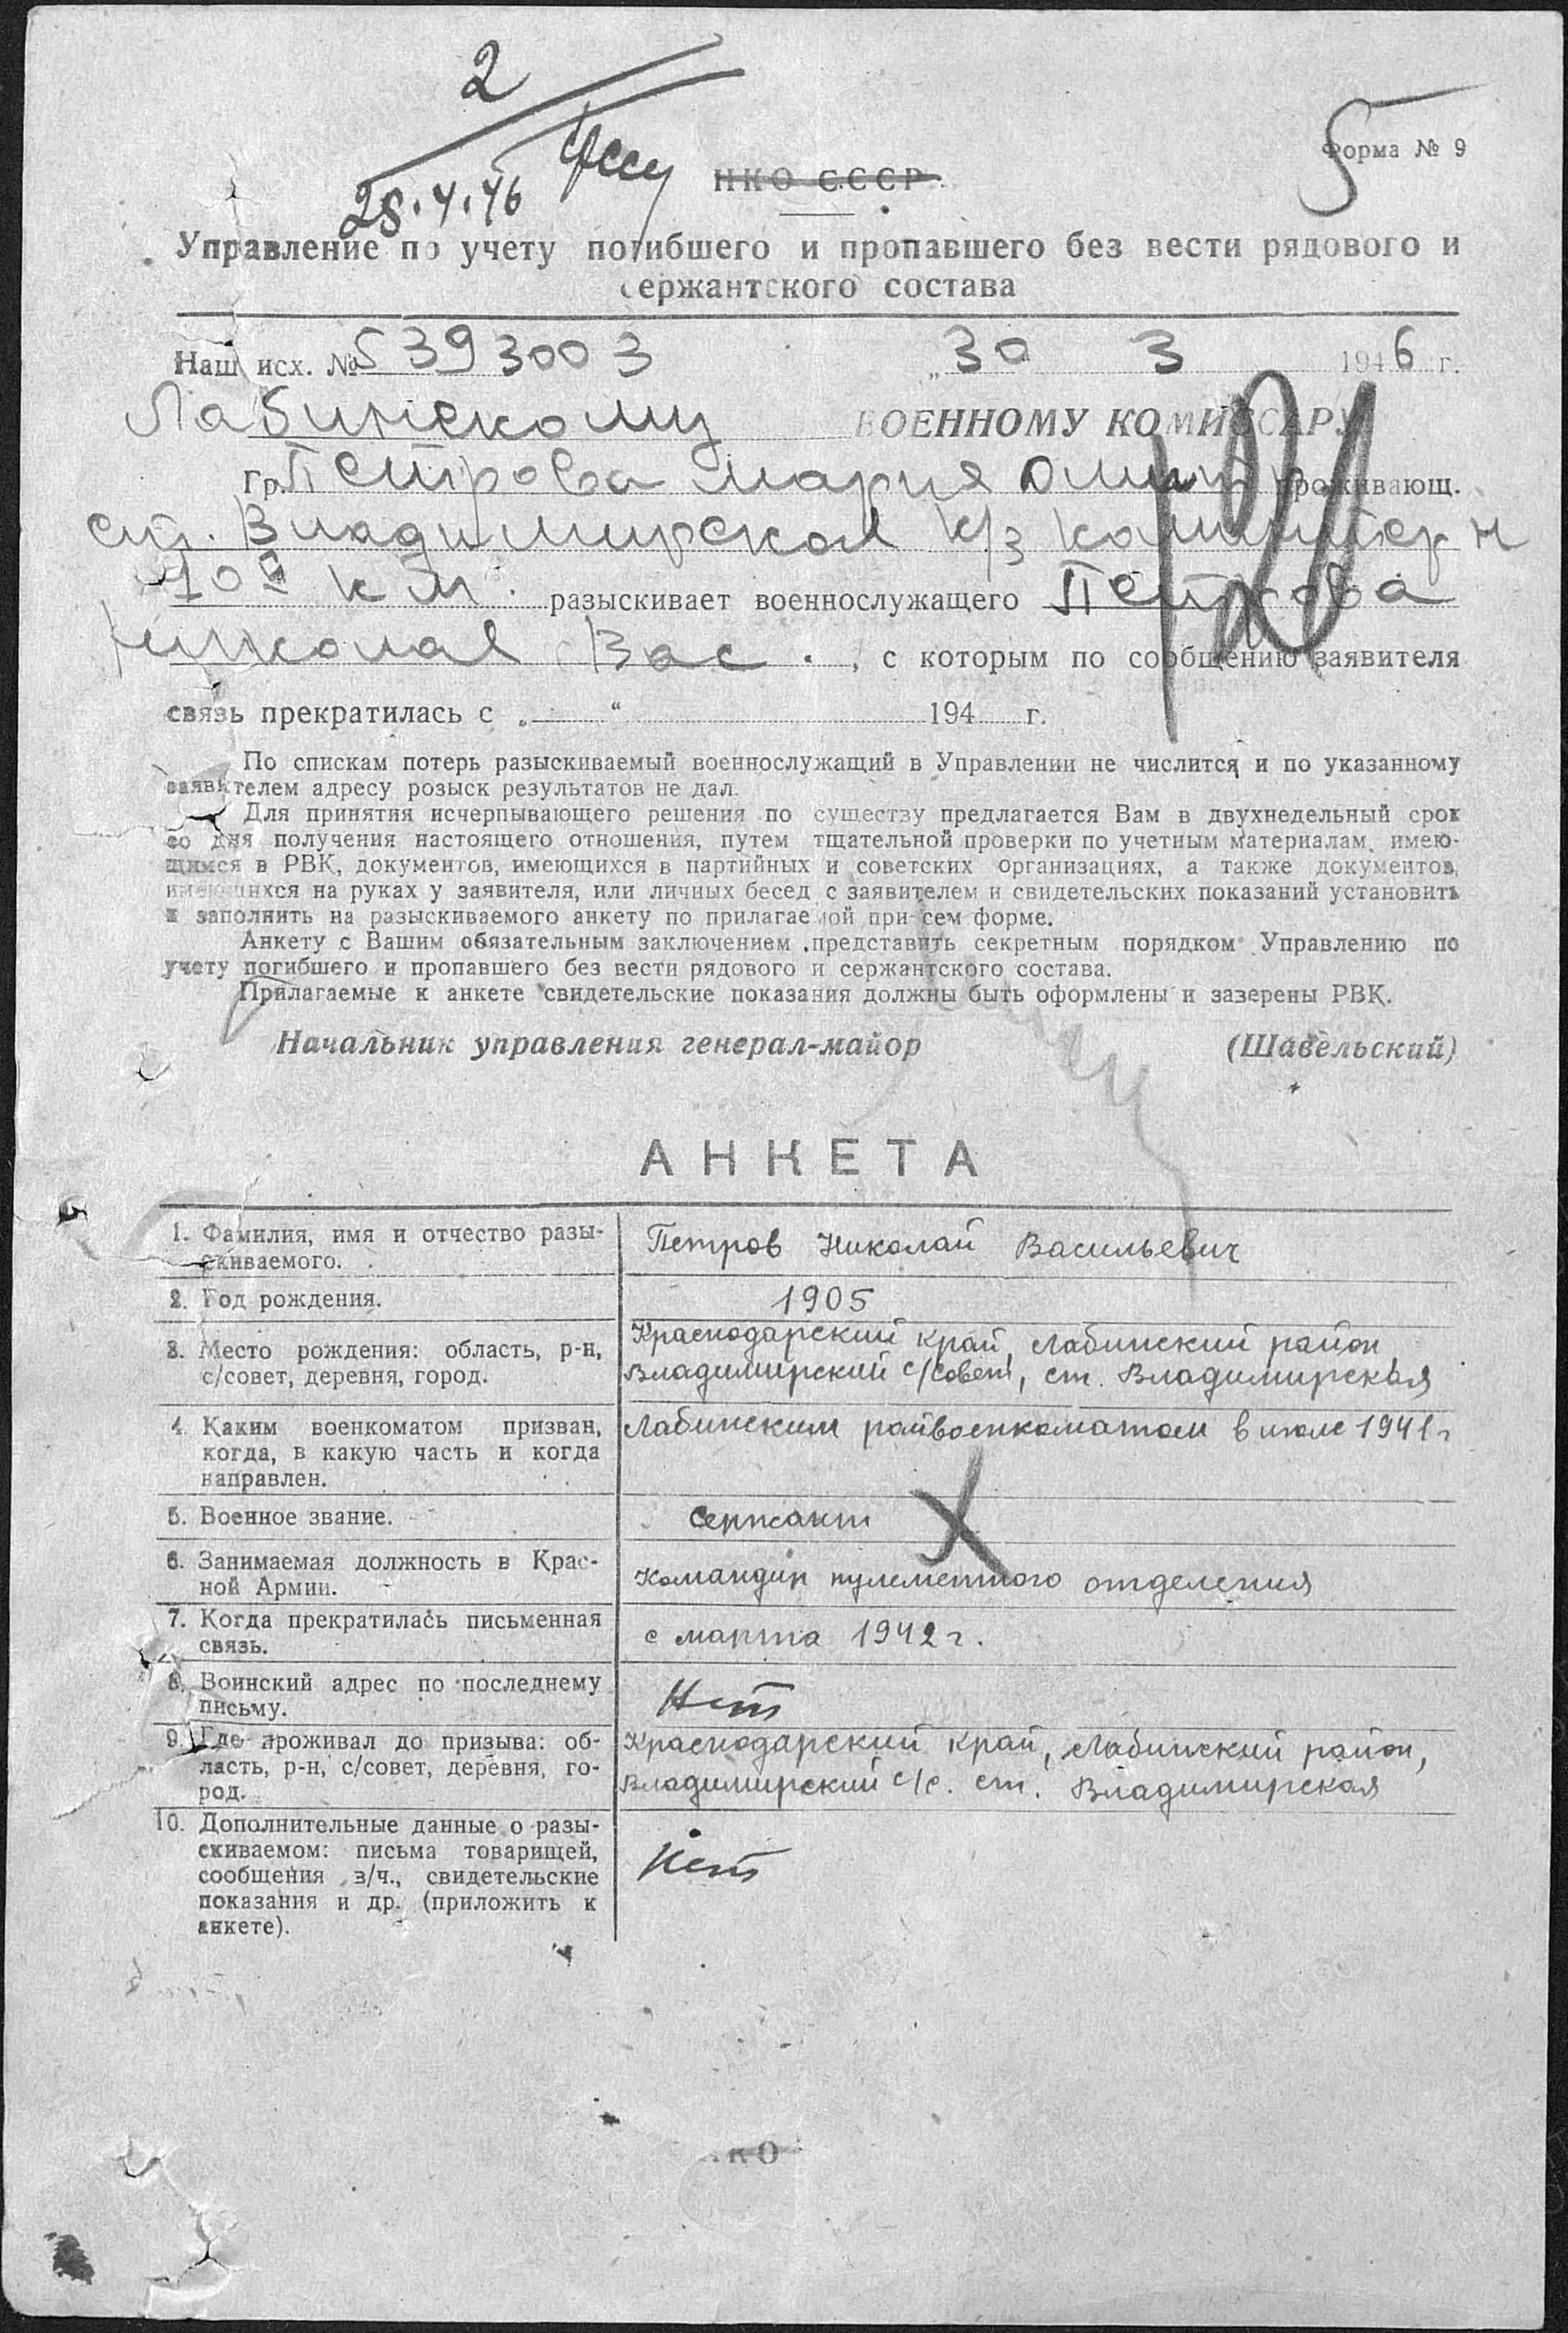 2
28.4.46
5
Форма № 9
НКО СССР
Управление по учету погибшего и пропавшего без вести рядового и
сержантского состава
Наш исх. № 5393003 „30 3 1946 г.
Лабинскому ВОЕННОМУ КОМИССАРУ
Гр. Петрова Мария проживающ.
ст. Владимирская к/з Коминтерн
разыскивает военнослужащего Петрова
Николая Вас., с которым по сообщению заявителя
связь прекратилась с „ “ 194 г.
По спискам потерь разыскиваемый военнослужащий в Управлении не числится и по указанному
заявителем адресу розыск результатов не дал.
Для принятия исчерпывающего решения по существу предлагается Вам в двухнедельный срок
со дня получения настоящего отношения, путем тщательной проверки по учетным материалам, имею-
щимся в РВК, документов, имеющихся в партийных и советских организациях, а также документов,
имеющихся на руках у заявителя, или личных бесед с заявителем и свидетельских показаний установить
и заполнить на разыскиваемого анкету по прилагаемой при сем форме.
Анкету с Вашим обязательным заключением представить секретным порядком Управлению по
учету погибшего и пропавшего без вести рядового и сержантского состава.
Прилагаемые к анкете свидетельские показания должны быть оформлены и заверены РВК.
Начальник управления генерал-майор (Шавельский)
АНКЕТА
1. Фамилия, имя и отчество разы-
скиваемого.
Петров Николай Васильевич
2. Год рождения.
1905
3. Место рождения: область, р-н,
с/совет, деревня, город.
Краснодарский край, Лабинский район
Владимирский с/совет, ст. Владимирская
4. Каким военкоматом призван,
когда, в какую часть и когда
направлен.
Лабинским райвоенкоматом в июле 1941 г
5. Военное звание.
Сержант
6. Занимаемая должность в Крас-
ной Армии.
Командир пулеметного отделения
7. Когда прекратилась письменная
связь.
с марта 1942 г.
8. Воинский адрес по последнему
письму.
Нет
9. Где проживал до призыва: об-
ласть, р-н, с/совет, деревня, го-
род.
Краснодарский край, Лабинский район,
Владимирский с/с. ст. Владимирская
10. Дополнительные данные о разы-
скиваемом: письма товарищей,
сообщения в/ч., свидетельские
показания и др. (приложить к
анкете).
Нет